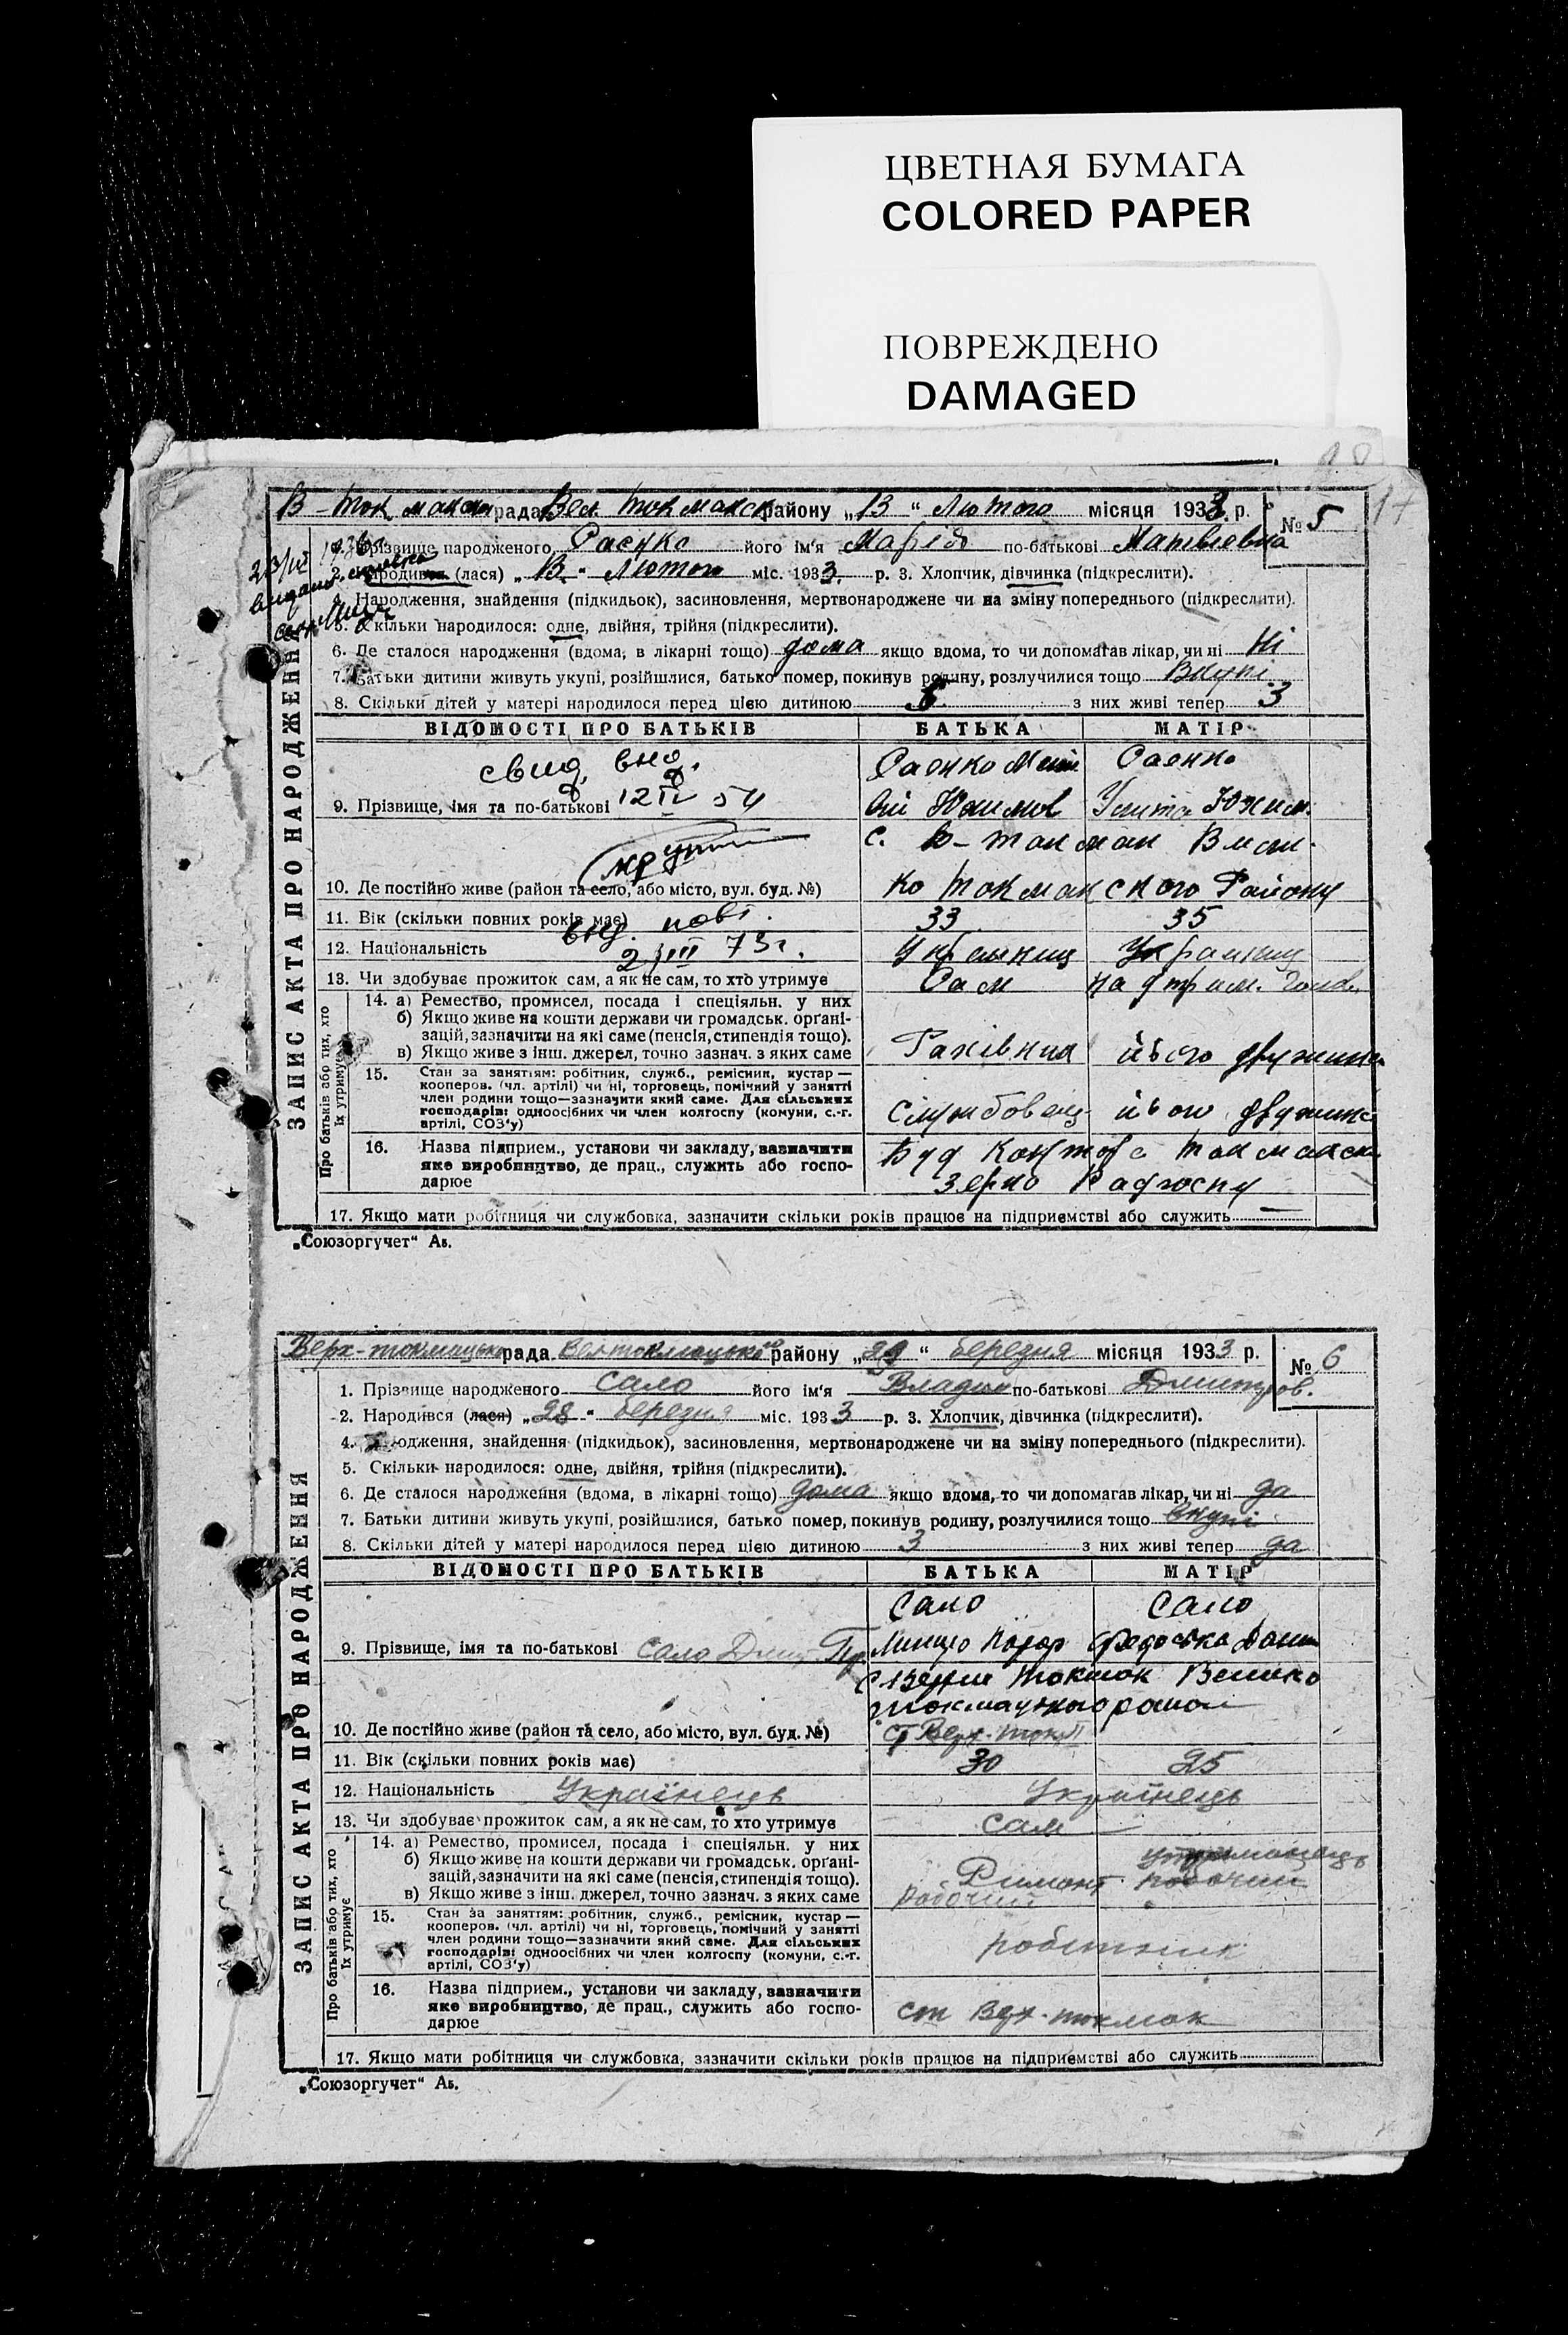 ЦВЕТНАЯ БУМАГА
COLORED PAPER
ПОВРЕЖДЕНО
DAMAGED
17
рада Вел Токмакск району „13“ Лютого місяця 1933 р. № 5
ЗАПИС АКТА ПРО НАРОДЖЕННЯ
Прізвище народженого Саєнко його ім'я Марію по-батькові Матвіевна
2. Народився (лася) „13“ Лютого міс. 1933 р. 3. Хлопчик, дівчинка (підкреслити).
4. Народження, знайдення (підкидьок), засиновлення, мертвонароджене чи на зміну попереднього (підкреслити).
5. Скільки народилося: одне, двійня, трійня (підкреслити).
6. Де сталося народження (вдома, в лікарні тощо) дома якщо вдома, то чи допомагав лікар, чи ні Ні
7. Батьки дитини живуть укупі, розійшлися, батько помер, покинув родину, розлучилися тощо Вкупі
8. Скільки дітей у матері народилося перед цією дитиною 5 з них живі тепер 3
ВІДОМОСТІ ПРО БАТЬКІВ БАТЬКА МАТІР
свид. выд. Саенко Саенко
9. Прізвище, імя та по-батькові 12 IV 54
с. В-Токмак Вели-
10. Де постійно живе (район та село, або місто, вул. буд. №) ко Токмакского Району
11. Вік (скільки повних років має) 33 35
12. Національність 73г. Українец Украинец
13. Чи здобуває прожиток сам, а як не сам, то хто утримує Сам на утрим.
Про батьків або тих, хто їх утримує
14. а) Ремество, промисел, посада і спеціяльн. у них
б) Якщо живе на кошти держави чи громадськ. органі-
зацій, зазначити на які саме (пенсія, стипендія тощо).
в) Якщо живе з інш. джерел, точно зазнач. з яких саме Рахівник його дружина
15. Стан за заняттям: робітник, служб., ремісник, кустар —
кооперов. (чл. артілі) чи ні, торговець, помічний у занятті
член родини тощо—зазначити який саме. Для сільських
господарів: одноосібних чи член колгоспу (комуни, с.-г.
артілі, СОЗ'у) Службовец його дружина
16. Назва підприєм., установи чи закладу, зазначити Буд Контора Токмакск.
яке виробництво, де прац., служить або госпо-
дарює Зерно Радгоспу
17. Якщо мати робітниця чи службовка, зазначити скільки років працює на підприємстві або служить —
„Союзоргучет“ Аб.
Верх-токмацька рада Велтокмацького району „29“ березня місяця 1933 р. № 6
ЗАПИС АКТА ПРО НАРОДЖЕННЯ
1. Прізвище народженого Сало його ім'я Владим по-батькові Дмитров.
2. Народився (лася) „28“ березня міс. 1933 р. 3. Хлопчик, дівчинка (підкреслити).
4. Народження, знайдення (підкидьок), засиновлення, мертвонароджене чи на зміну попереднього (підкреслити).
5. Скільки народилося: одне, двійня, трійня (підкреслити).
6. Де сталося народження (вдома, в лікарні тощо) дома якщо вдома, то чи допомагав лікар, чи ні да
7. Батьки дитини живуть укупі, розійшлися, батько помер, покинув родину, розлучилися тощо вкупі
8. Скільки дітей у матері народилося перед цією дитиною 3 з них живі тепер да
ВІДОМОСТІ ПРО БАТЬКІВ БАТЬКА МАТІР
Сало Сало
9. Прізвище, імя та по-батькові Сало
Токмак Велико
10. Де постійно живе (район та село, або місто, вул. буд. №) ст Верх-ток
11. Вік (скільки повних років має) 30 25
12. Національність Українець Українець
13. Чи здобуває прожиток сам, а як не сам, то хто утримує сам
Про батьків або тих, хто їх утримує
14. а) Ремество, промисел, посада і спеціяльн. у них
б) Якщо живе на кошти держави чи громадськ. органі-
зацій, зазначити на які саме (пенсія, стипендія тощо). Римонт
в) Якщо живе з інш. джерел, точно зазнач. з яких саме рабочий
15. Стан за заняттям: робітник, служб., ремісник, кустар —
кооперов. (чл. артілі) чи ні, торговець, помічний у занятті
член родини тощо—зазначити який саме. Для сільських робітник
господарів: одноосібних чи член колгоспу (комуни, с.-г.
артілі, СОЗ'у)
16. Назва підприєм., установи чи закладу, зазначити
яке виробництво, де прац., служить або госпо- ст Верх-токмак
дарює
17. Якщо мати робітниця чи службовка, зазначити скільки років працює на підприємстві або служить
„Союзоргучет“ Аб.